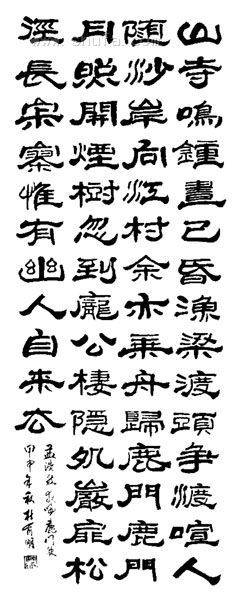 山寺鳴鍾晝已昏漁梁渡頭爭渡喧人
随沙岸向江村余亦乘舟歸鹿門鹿門
月照開煙樹忽到龐公棲隱処巖扉松
徑長寂寥惟有幽人自來去
孟浩然夜歸鹿门歌
甲申年秋杜